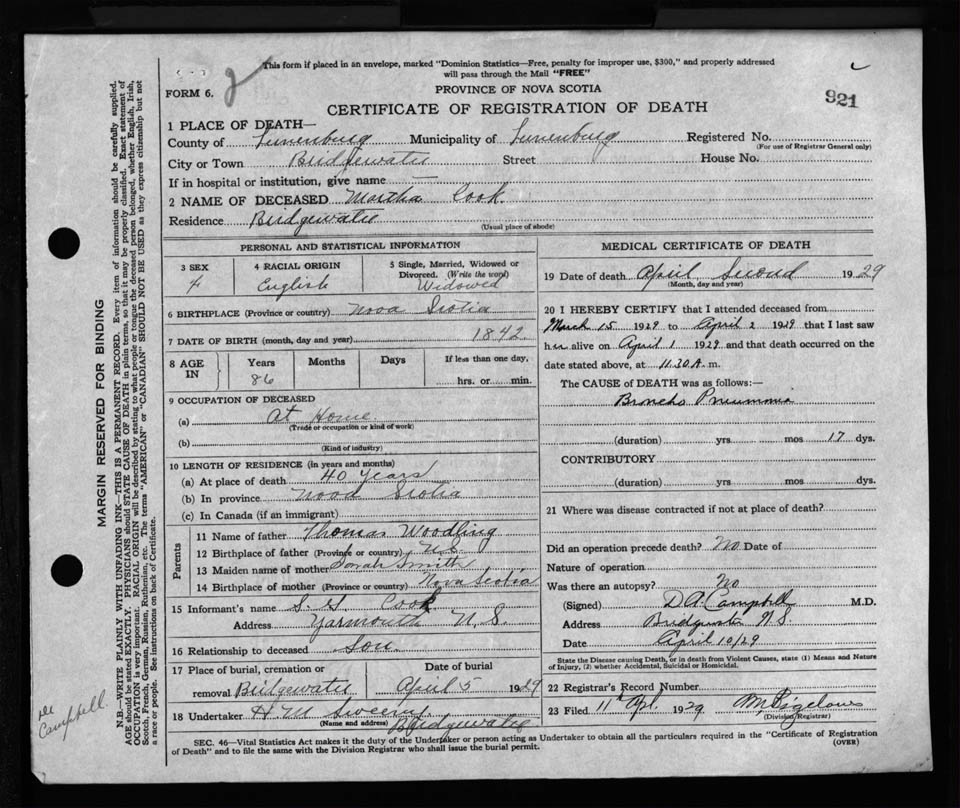 This form if placed in an envelope, marked "Dominion Statistics—Free, penalty for improper use, $300," and properly addressed
will pass through the Mail "FREE"
FORM 6.
2
PROVINCE OF NOVA SCOTIA
CERTIFICATE OF REGISTRATION OF DEATH
921
1 PLACE OF DEATH—
County of Lunenburg Municipality of Lunenburg Registered No.
(For use of Registrar General only)
City or Town Bridgewater Street House No.
If in hospital or institution, give name —
2 NAME OF DECEASED Martha Cook.
Residence Bridgewater
(Usual place of abode)
PERSONAL AND STATISTICAL INFORMATION
3 SEX F
4 RACIAL ORIGIN English
5 Single, Married, Widowed or Divorced. (Write the word) Widowed
6 BIRTHPLACE (Province or country) Nova Scotia
7 DATE OF BIRTH (month, day and year) 1842.
8 AGE IN Years 86 Months Days If less than one day, hrs. or min.
9 OCCUPATION OF DECEASED
(a) At Home.
(Trade or occupation or kind of work)
(b)
(Kind of industry)
10 LENGTH OF RESIDENCE (in years and months)
(a) At place of death 40 Years
(b) In province Nova Scotia
(c) In Canada (if an immigrant)
Parents
11 Name of father Thomas Woodling
12 Birthplace of father (Province or country) N.S.
13 Maiden name of mother Sarah Smith
14 Birthplace of mother (Province or country) Nova Scotia
15 Informant's name Cook
Address Yarmouth N.S.
16 Relationship to deceased Son.
17 Place of burial, cremation or Date of burial
removal Bridgewater April 5 1929
18 Undertaker H. M. Sweeny
(Name and address) Bridgewater
MEDICAL CERTIFICATE OF DEATH
19 Date of death April Second 1929
(Month, day and year)
20 I HEREBY CERTIFY that I attended deceased from
March 15 1929 to April 2 1929 that I last saw
her alive on April 1 1929 and that death occurred on the
date stated above, at 11.30 A. m.
The CAUSE of DEATH was as follows:—
Broncho Pneumonia
(duration) yrs. mos 17 dys.
CONTRIBUTORY
(duration) yrs. mos dys.
21 Where was disease contracted if not at place of death?
Did an operation precede death? No Date of
Nature of operation
Was there an autopsy? No
(Signed) D. A. Campbell M.D.
Address Bridgewater N.S.
Date April 10/29
State the Disease causing Death, or in death from Violent Causes, state (1) Means and Nature
of Injury, (2) whether Accidental, Suicidal or Homicidal.
22 Registrar's Record Number
23 Filed 11th Apl. 1929
(Division Registrar)
SEC. 46—Vital Statistics Act makes it the duty of the Undertaker or person acting as Undertaker to obtain all the particulars required in the "Certificate of Registration
of Death" and to file the same with the Division Registrar who shall issue the burial permit.
(OVER)
MARGIN RESERVED FOR BINDING
N.B.—WRITE PLAINLY WITH UNFADING INK—THIS IS A PERMANENT RECORD. Every item of information should be carefully supplied.
AGE should be stated EXACTLY. PHYSICIANS should STATE CAUSE OF DEATH in plain terms, so that it may be properly classified. Exact statement of
OCCUPATION is very important. RACIAL ORIGIN will be described by stating to what people or tongue the deceased person belonged, whether English, Irish,
Scotch, French, German, Russian, Ruthenian, etc. The terms "AMERICAN" or "CANADIAN" SHOULD NOT BE USED as they express citizenship but not
a race or people. See instructions on back of Certificate.
Campbell.